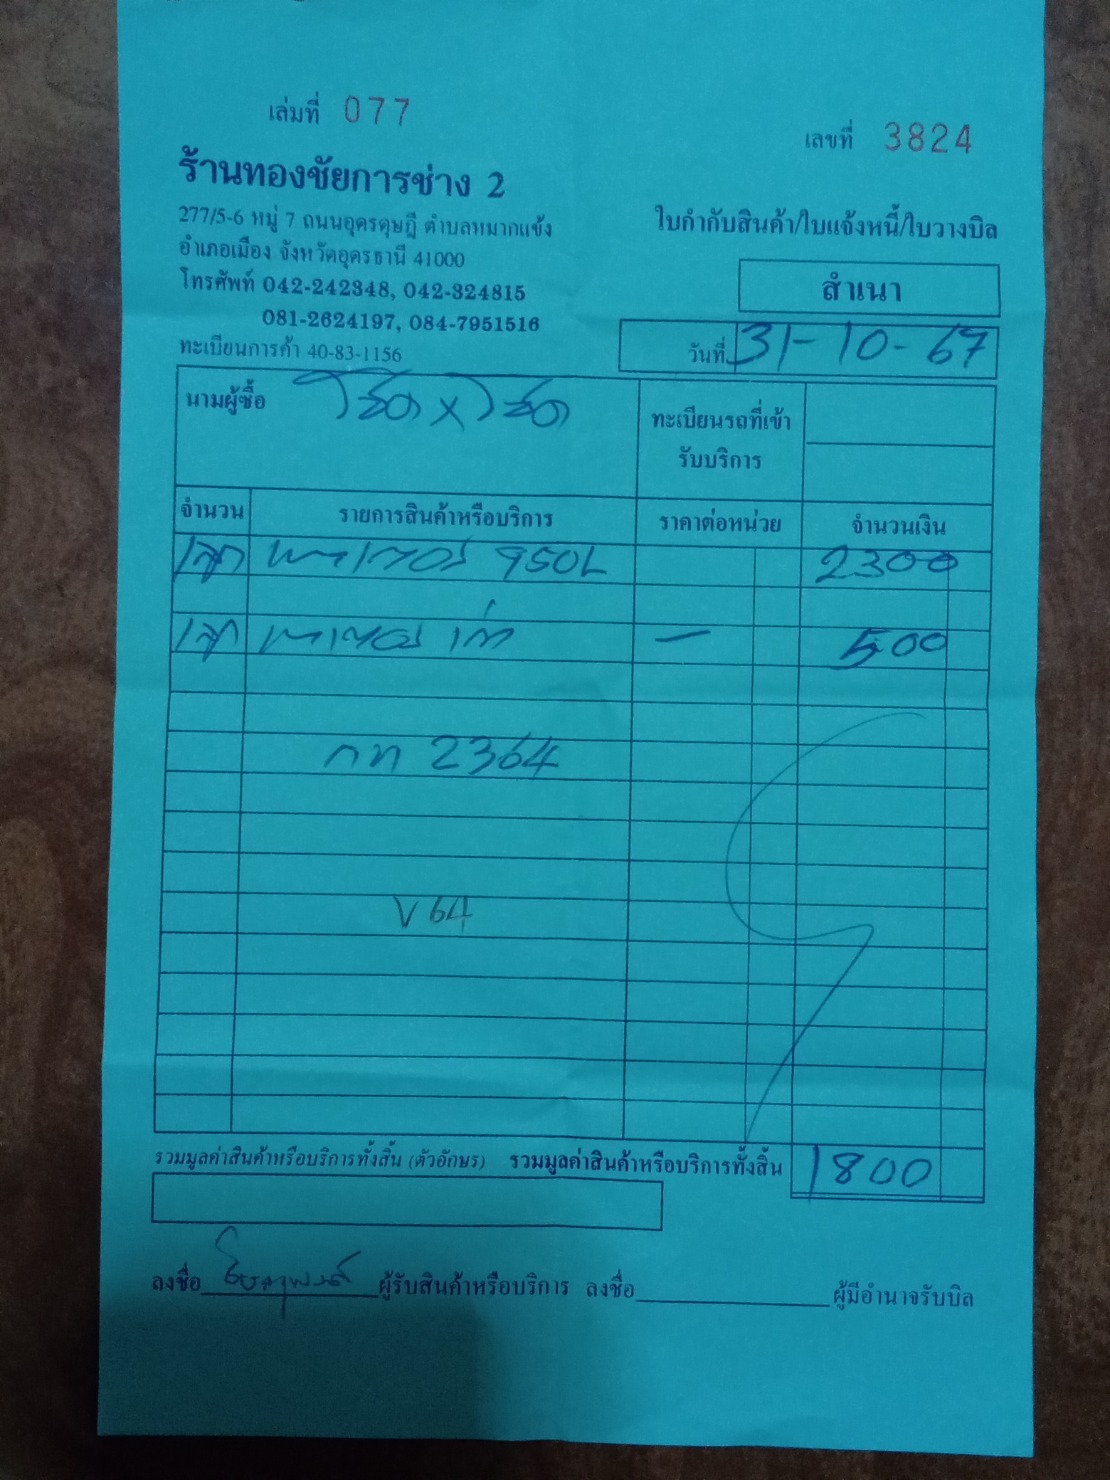 เล่มที่ 077
เลขที่ 3824
ร้านทองชัยการช่าง 2
277/5-6 หมู่ 7 ถนนอุดรดุษฎี ตำบลหมากแข้ง
อำเภอเมือง จังหวัดอุดรธานี 41000
โทรศัพท์ 042-242348, 042-324815
081-2624197, 084-7951516
ทะเบียนการค้า 40-83-1156
ใบกำกับสินค้า/ใบแจ้งหนี้/ใบวางบิล
สำเนา
วันที่ 31-10-67
นามผู้ซื้อ โชิด x โชิด
ทะเบียนรถที่เข้า
รับบริการ
จำนวน รายการสินค้าหรือบริการ ราคาต่อหน่วย จำนวนเงิน
1 950L 2300
1 เก่า - 500
กท 2364
V64
รวมมูลค่าสินค้าหรือบริการทั้งสิ้น (ตัวอักษร) รวมมูลค่าสินค้าหรือบริการทั้งสิ้น 1800
ลงชื่อ ผู้รับสินค้าหรือบริการ ลงชื่อ ผู้มีอำนาจรับบิล